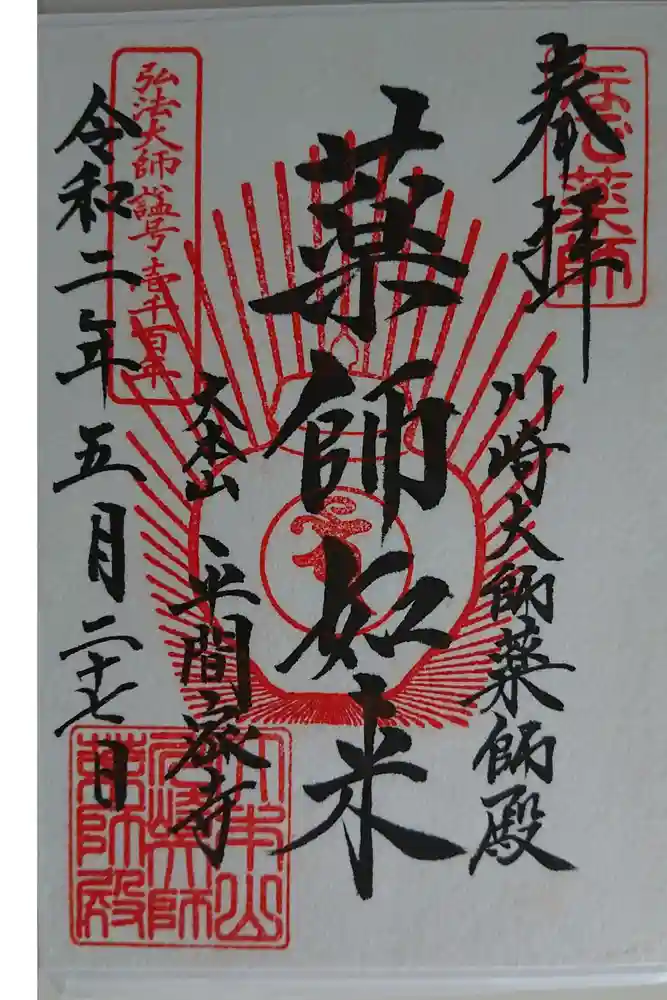 奉拝
なで薬師
川崎大師薬師殿
薬師如来
大本山
平間 寺
弘法大師諡号壹千百年
令和二年五月二十七日
大本山
川崎大師
薬師殿